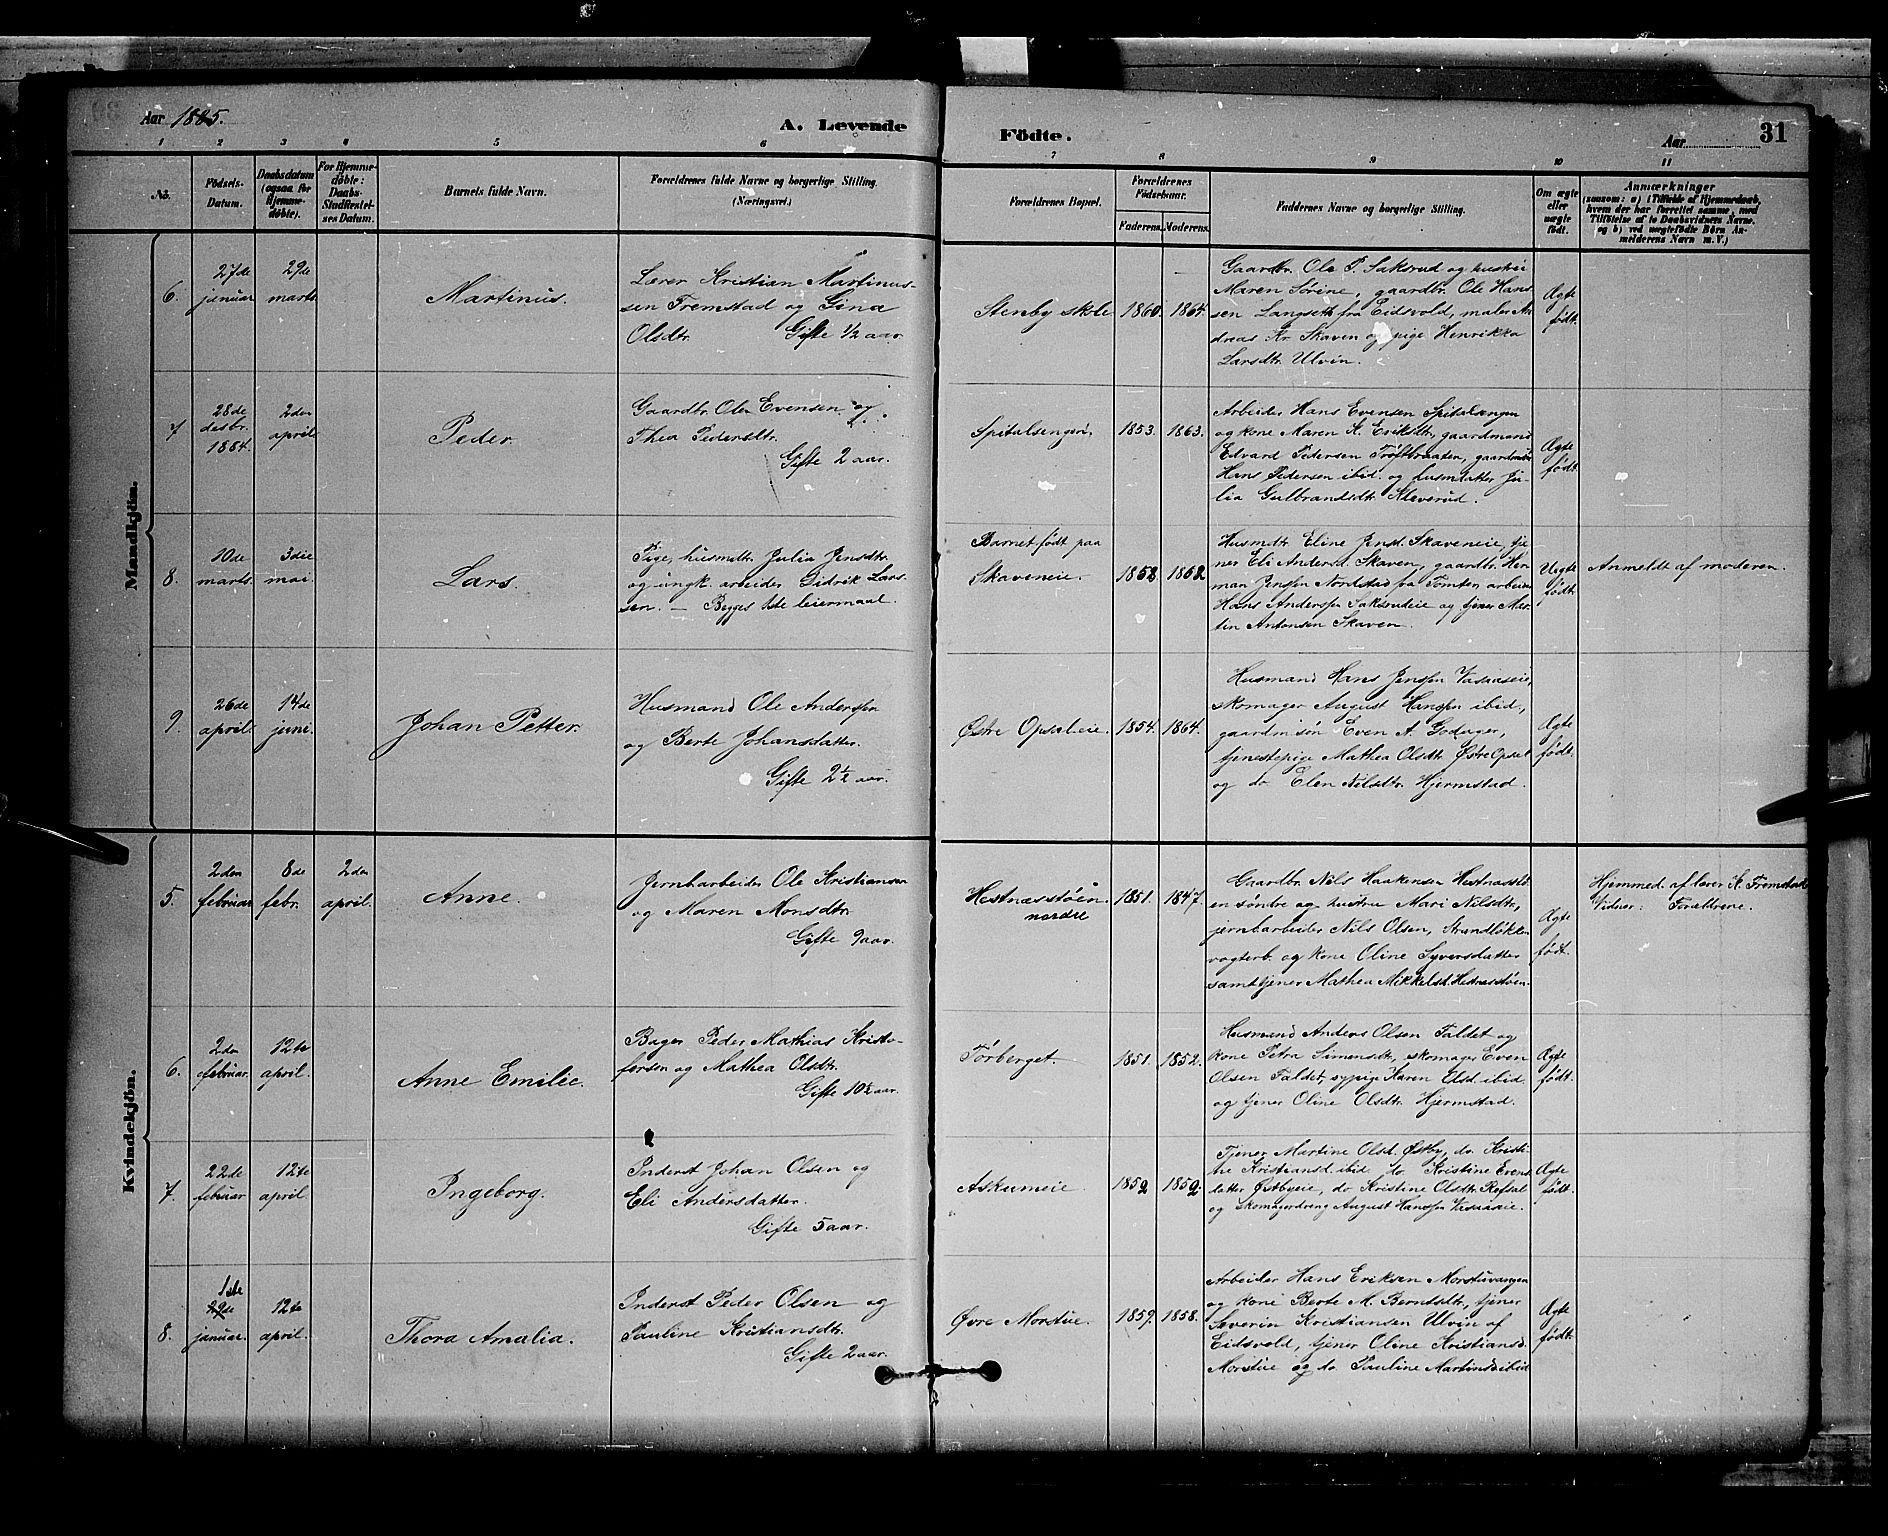 Aar 1885.
A. Levende
Födte.
Aar
31
1 2 3 4 5 6 7 8 9 10 11
No.
Födsels-Datum.
Daabsdatum (ogsaa for Hjemmedöbte).
For Hjemmedöbte: Daabs-Stadfæstelses Datum.
Barnets fulde Navn.
Forældrenes fulde Navne og borgerlige Stilling. (Næringsvei.)
Forældrenes Bopæl.
Forældrenes Födselsaar.
Faderens.
Moderens.
Faddernes Navne og borgerlige Stilling.
Om ægte eller uægte födt.
Anmærkninger
(saasom: a) i Tilfælde af Hjemmedaab, hvem der har forrettet samme, med Tilföielse af to Daabsvidners Navne, og b) ved uægtefödte Börn Anmelderens Navn m. V.)
Mandkjön.
6.
27de januar
29de marts
Martinus.
Lærer Kristian Martinus-
sen Fremstad og Gina
Olsdtr.
Gifte 1/2 aar.
Stenby skole
1860.
1864.
Gaardbr. Ole P. Saksrud og hustru
Maren Sørine, gaardbr. Ole Han-
sen Langseth fra Eidsvold, maler An-
dreas Kr. Skaven og pige Henrikka
Larsdtr. Ulvin.
Ægte født.
7
28de desbr. 1884.
2den april
Peder.
Gaardbr. Ole Evensen og
Thea Pedersdtr.
Gifte 2 aar.
Spitalsengen,
1853.
1863.
Arbeider Hans Evensen Spitalengen
og kone Maren K. Eriksdtr, gaardmand
Edvard Pedersen Toftbraaten, gaardmand
Hans Pedersen ibid. og husmdatter Ju-
lia Gulbrandsdtr. Kleverud.
Ægte født.
8.
10de marts
3die mai.
Lars.
Pige, husmdtr. Julia Jensdtr.
og ungk. arbeider Didrik Lars-
sen. — Begges 1ste leiermaal.
Barnet født paa
Skaveneie.
1858
1862
Husmdtr. Eline Jensd. Skaveneie, tje-
ner Eli Andersd. Skaven, gaardbr. Her-
man Jenssen Nordstad paa Tomten, arbeider
Hans Anderssen Saksrudeie og tjener Mar-
tin Antonsen Skaven.
Uægte født.
Anmeldt af moderen.
9.
26de april.
14de juni.
Johan Petter.
Husmand Ole Anderssen
og Berte Johansdatter.
Gifte 2½ aar.
Østre Opsaleie.
1854.
1864.
Husmand Hans Jenssen Vasaaseie,
skomager August Hanssen ibid,
gaardmsøn Even A. Godager,
tjenestepige Mathea Olsdtr. Østre Opsal
og do Elen Nilsdtr. Hjermstad.
Ægte født.
Kvindekjön.
5.
2den februar
8de febr.
2den april.
Anne.
Jernbarbeider Ole Kristiansen
og Maren Monsdtr.
Gifte 9 aar.
Hestnæsstøen
nordre
1851.
1847.
Gaardbr. Nils Haakensen Hestnæsstø-
en søndre og hustru Mari Nilsdtr,
jernbarbeider Nils Olsen, Strandløkken
vogterb. og kone Oline Syversdatter
samt tjener Mathea Mikkelsd. Hestnæsstøen.
Ægte født.
Hjemmed. af lærer K. Fremstad
Vidner: Forældrene.
6.
2den februar.
12te april.
Anne Emilie.
Bager Peder Mathias Kristo-
fersen og Mathea Olsdtr.
Gifte 10½ aar.
Torberget.
1851.
1852.
Husmand Anders Olsen Faldet og
kone Petra Simensdtr, skomager Even
Olsen Faldet, sypige Karen Elsd. ibid
og tjener Oline Olsdtr. Hjermstad.
Ægte født.
7.
22de februar
12te april
Ingeborg.
Inderst Johan Olsen og
Eli Andersdatter.
Gifte 5 aar.
Askumeie.
1859
1859.
Tjener Martine Olsd. Østby, do Kristi-
ne Kristiansd. ibid. do Kristine Evens-
datter Østbyeie, do Kristine Olsdtr. Refsal
og skomagerdreng August Hanssen Vasaaseie.
Ægte født.
8.
1ste
29de januar.
12te april.
Thora Amalia.
Inderst Peder Olsen og
Pauline Kristiansdtr.
Gifte 2 aar.
Øvre Morstue.
1857.
1858.
Arbeider Hans Eriksen Morstuvangen
og kone Berte M. Berntsdtr, tjener
Severin Kristiansen Ulvin af
Eidsvold, tjener Oline Kristiansd.
Morstue og do Pauline Martinsd. ibid
Ægte født.